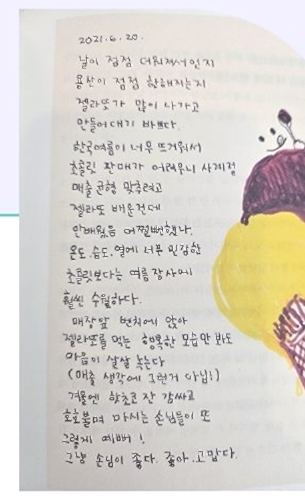 2021.6.20.
날이 점점 더워져서인지
용산이 점점 핫해지는지
젤라또가 많이 나가고
만들어대기 바쁘다.
한국여름이 너무 뜨거워서
초콜릿 판매가 어려우니 사계절
매출 균형 맞추려고
젤라또 배운건데
안배웠음 어쩔뻔했나.
온도, 습도, 열에 너무 민감한
초콜릿보다는 여름 장사에
훨씬 수월하다.
매장앞 벤치에 앉아
젤라또를 먹는 행복한 모습만 봐도
마음이 살살 녹는다
(매출 생각에 그런거 아님!)
겨울엔 핫초코 잔 감싸고
호호불며 마시는 손님들이 또
그렇게 예뻐!
그냥 손님이 좋다. 좋아. 고맙다.